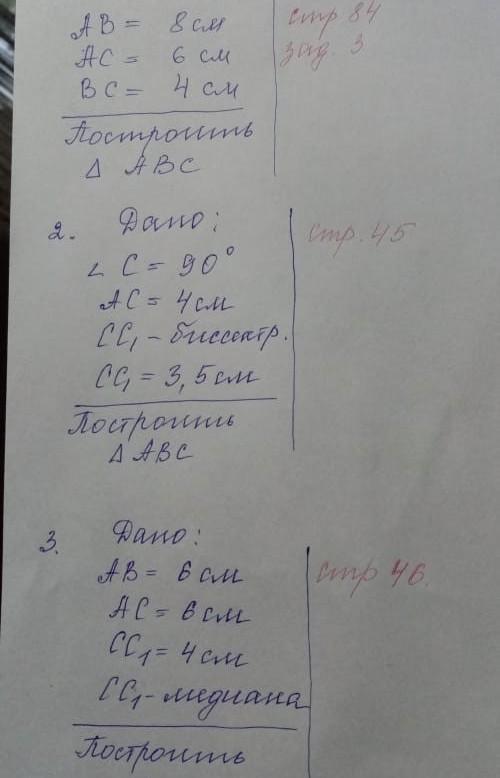 AB = 8 см
стр 84
AC = 6 см
зад. 3
BC = 4 см
Построить
Δ ABC
2. Дано:
стр. 45
∠ C = 90°
AC = 4 см
CC₁ - биссектр.
CC₁ = 3,5 см
Построить
Δ ABC
3. Дано:
AB = 6 см
стр 46.
AC = 6 см
CC₁ = 4 см
CC₁ - медиана
Построить